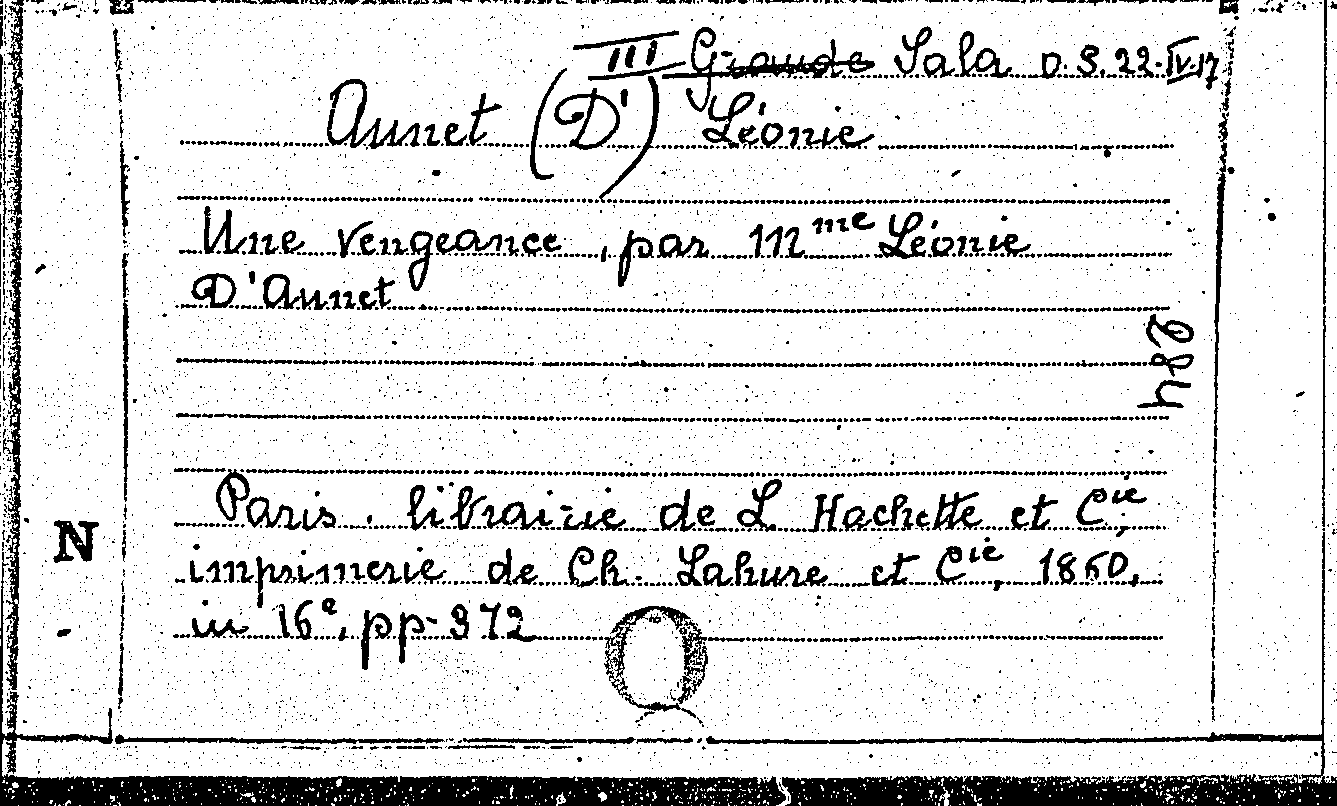 III Grande Sala D. S. 22. IV. 17
Aunet (D') Léonie
Une vengeance, par Mme Léonie
D'Aunet
284
Paris. librairie de L. Hachette et Cie,
N
imprimerie de Ch. Lahure et Cie, 1860,
in 16e, pp. 372